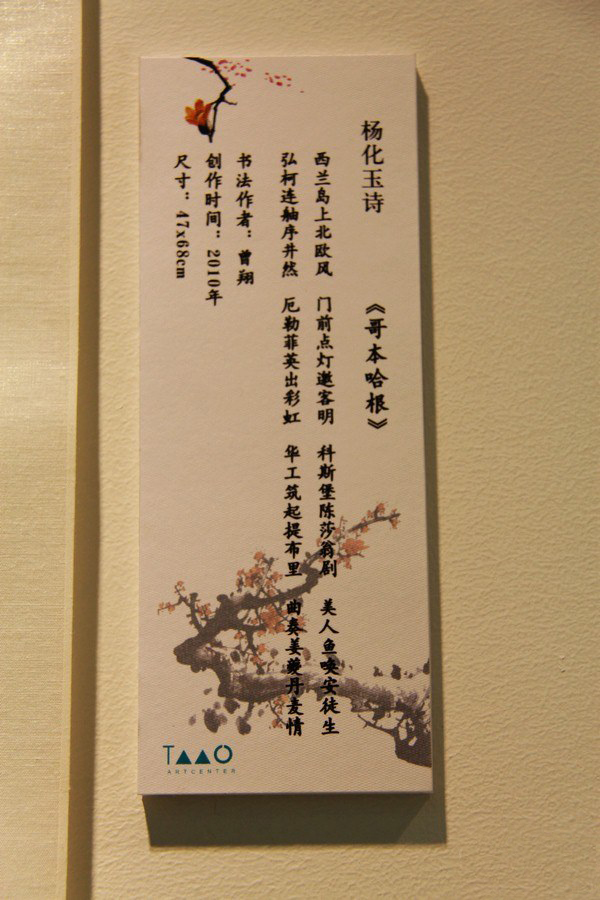 杨化玉诗 《哥本哈根》
西兰岛上北欧风 门前点灯邀客明 科斯堡陈莎翁剧 美人鱼唤安徒生
弘柯连舳序井然 厄勒菲英出彩虹 华工筑起提布里 曲奏姜夔丹麦情
书法作者：曾翔
创作时间：2010年
尺寸：47x68cm
TAAO
ARTCENTER